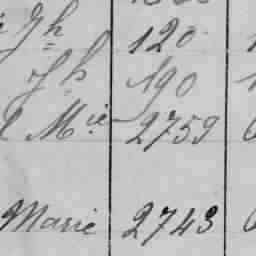 Jh 120
Jh 190
Mie 2759
Marie 2743